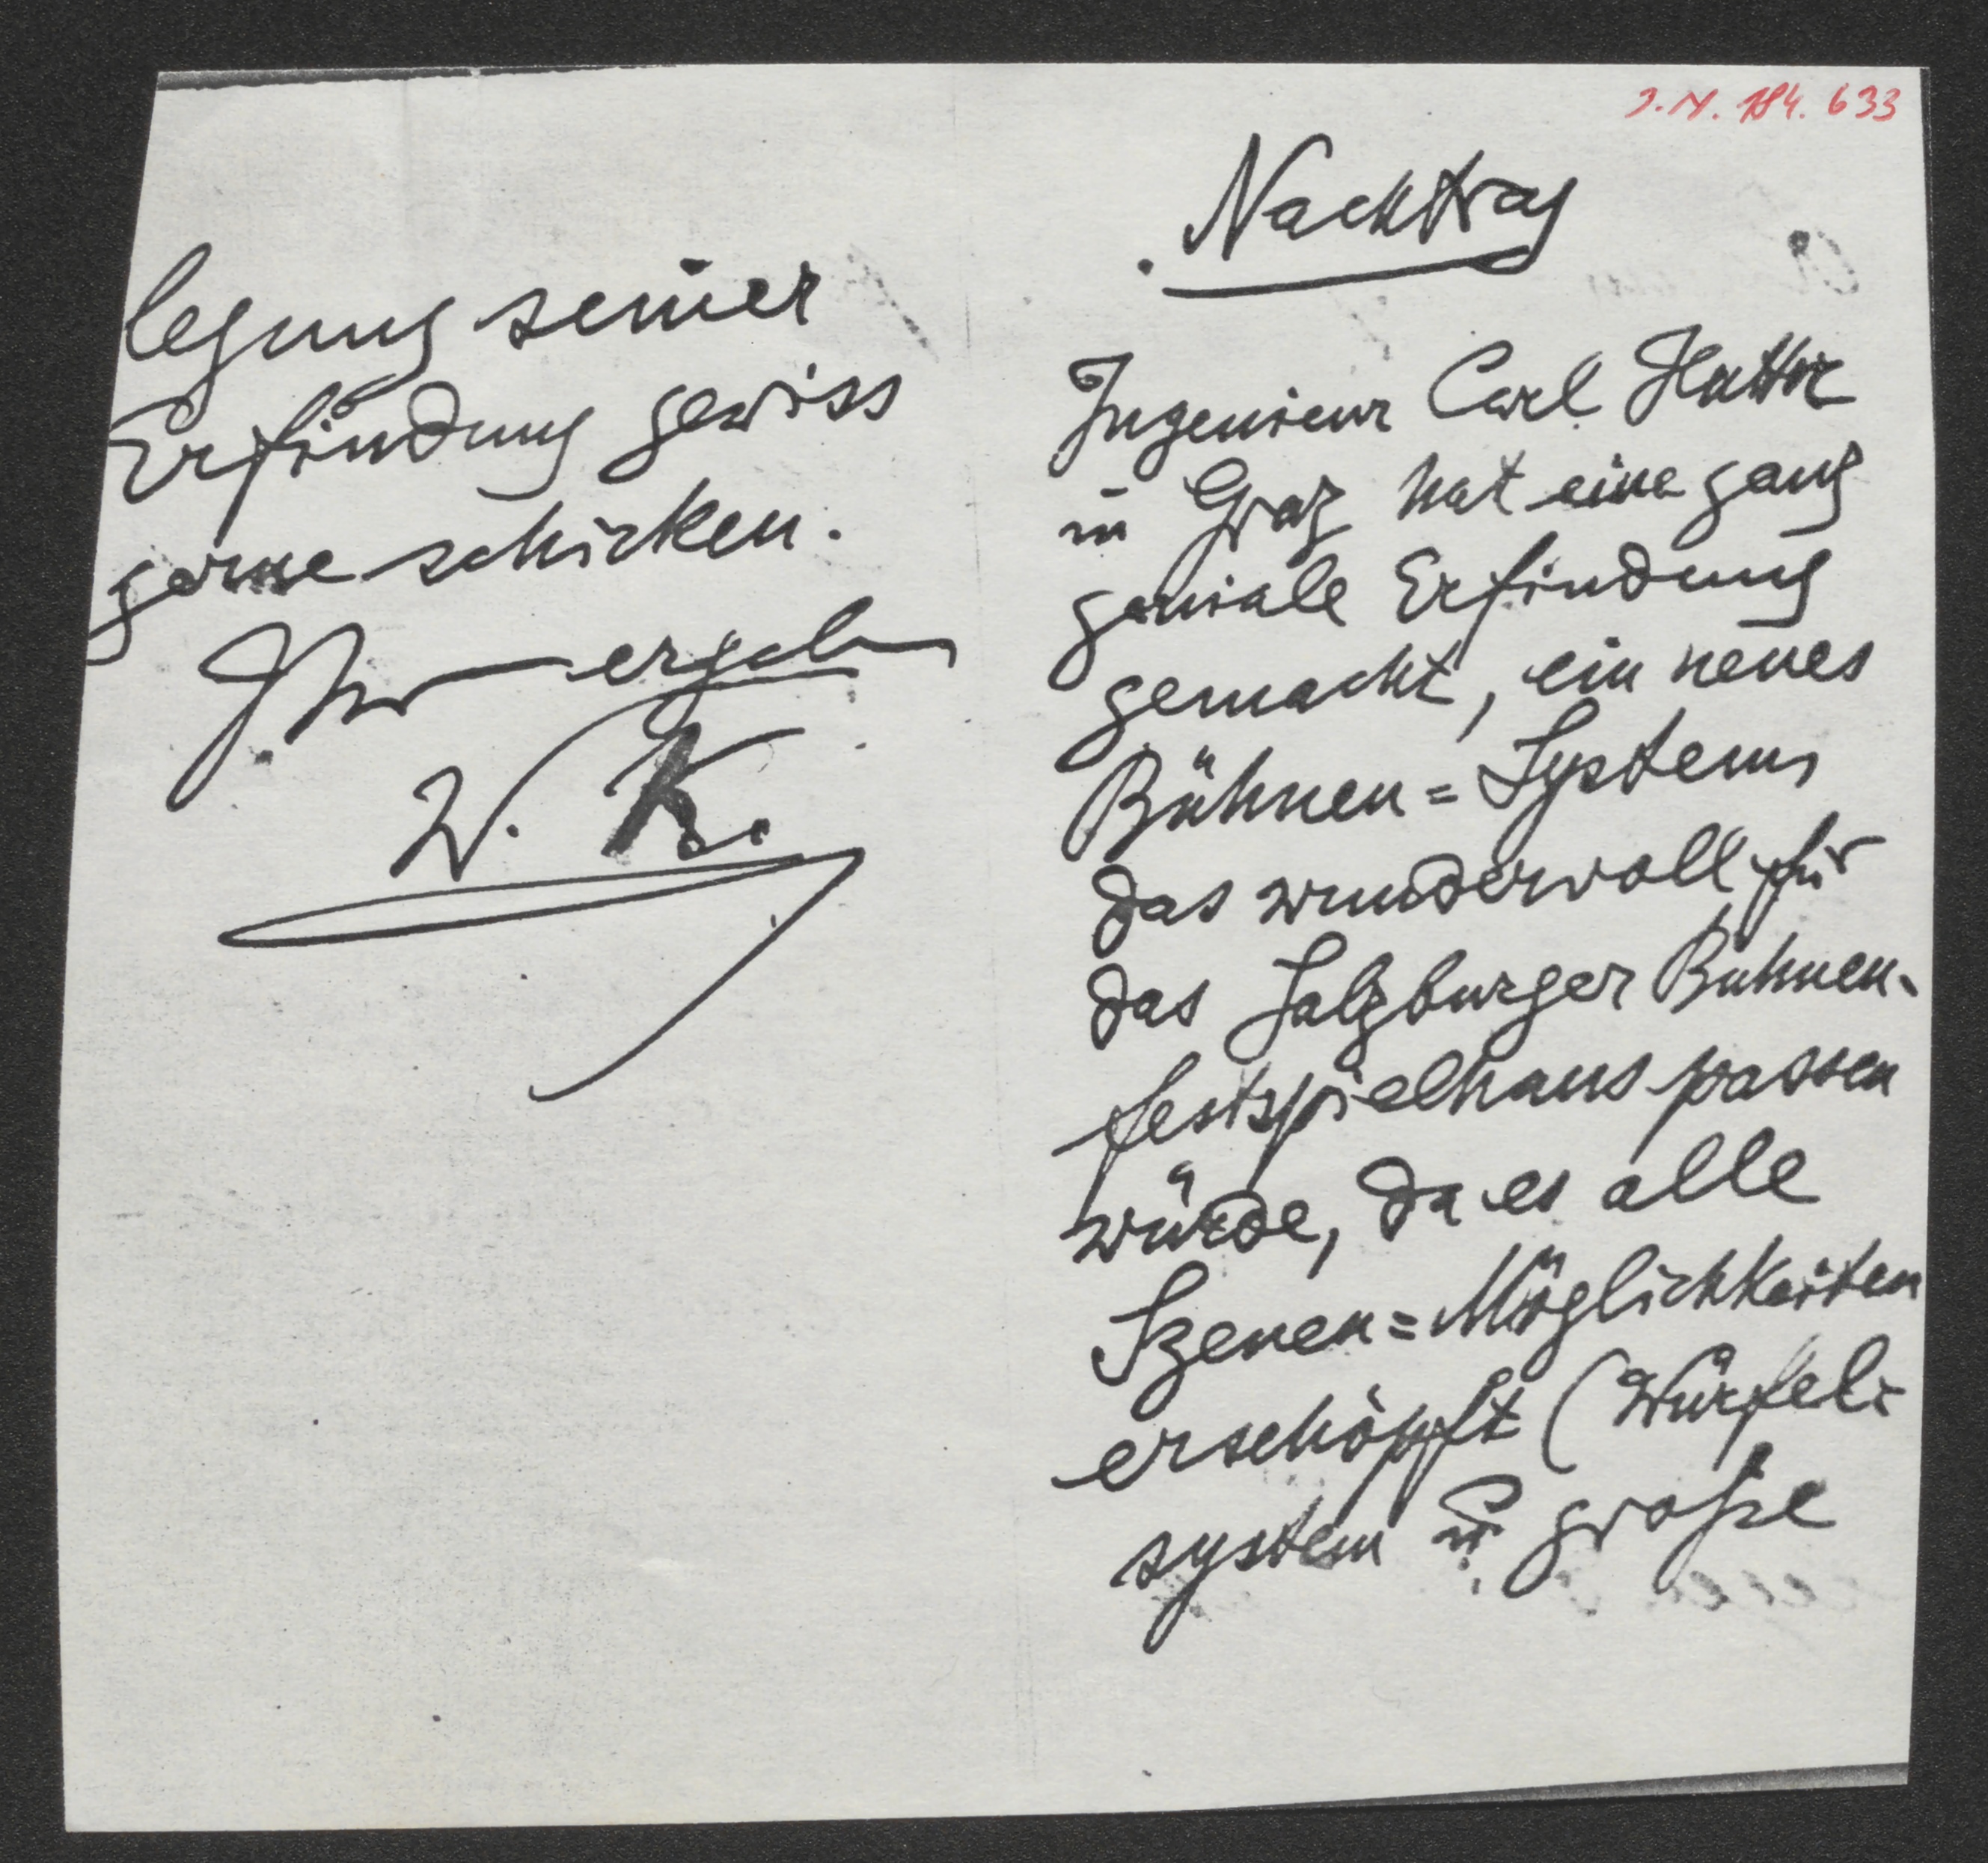 J.N. 184.633
Nachtrag
Ingenieur Carl
in Graz hat eine ganz
geniale Erfindung
gemacht, ein neues
Bühnen=System,
das wundervoll für
das Salzburger Bühnen-
festspielhaus passen
würde, da es alle
Szenen=Möglichkeiten
erschöpft (Würfel-
system u große
legung seiner
Erfindung gewiss
gerne schicken.
Ihr ergeb
W. K.